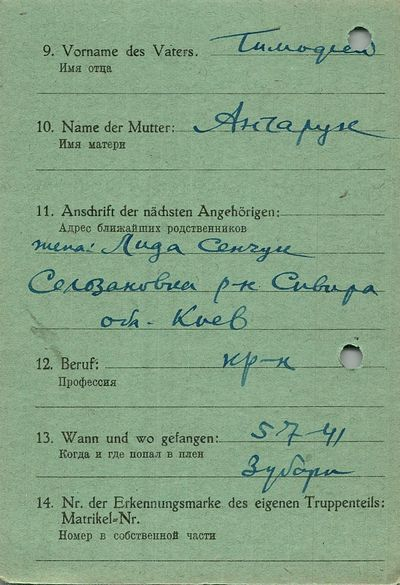 9. Vorname des Vaters. Тимофей
Имя отца
10. Name der Mutter: Янчарук
Имя матери
11. Anschrift der nächsten Angehörigen:
Адрес ближайших родственников
жена: Лида Сенчук
р-н Сивира
обл. Киев
12. Beruf: кр-н
Профессия
13. Wann und wo gefangen: 5 7 41
Когда и где попал в плен
14. Nr. der Erkennungsmarke des eigenen Truppenteils:
Matrikel=Nr.
Номер в собственной части